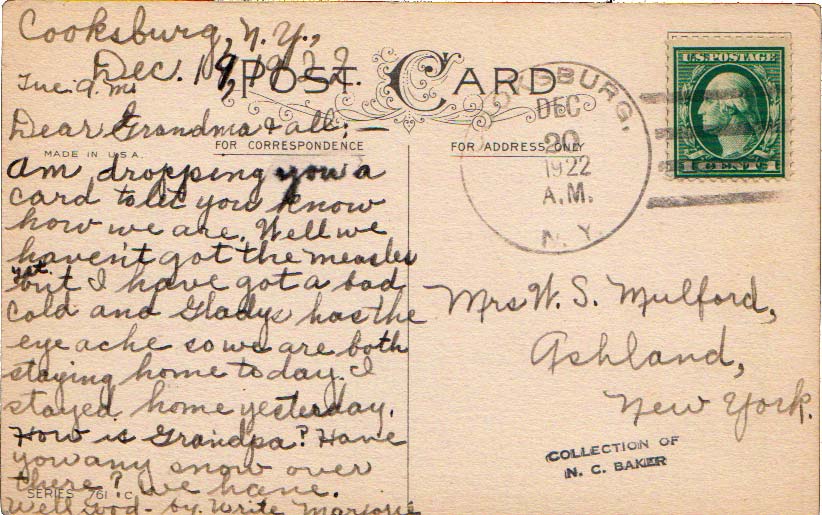 Cooksburg, N.Y.,
Dec. 19, 1922.
Tue. a.m.
POST CARD
Dear Grandma & all; —
MADE IN U.S.A.
FOR CORRESPONDENCE
FOR ADDRESS ONLY
am dropping you a
card to let you know
how we are. Well we
haven't got the measles
yet.
but I have got a bad
cold and Gladys has the
eye ache so we are both
staying home today. I
stayed home yesterday.
How is Grandpa? Have
you any snow over
there? We have.
SERIES 761 C
Well good-by. Write Marjorie
OKSBURG,
DEC
20
1922
A.M.
N. Y.
U.S. POSTAGE
1 CENT 1
Mrs W. S. Mulford,
Ashland,
New York.
COLLECTION OF
N. C. BAKER